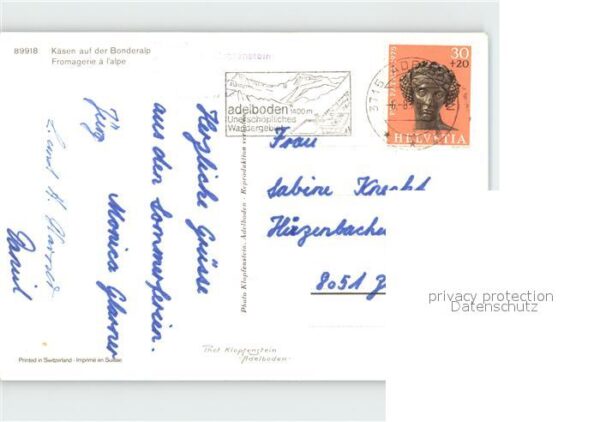 89918 Käsen auf der Bonderalp
Fromagerie à l'alpe
adelboden 1400 m
Unerschöpfliches
Wandergebiet
3715
30
+20
HELVETIA
Herzliche Grüsse
aus den Sommerferien.
Monica Glarner
Jürg
Frau
Sabine Knecht
8051
Photo Klopfenstein, Adelboden - Reproduktion
Phot Klopfenstein
Adelboden
Printed in Switzerland - Imprimé en Suisse
privacy protection
Datenschutz